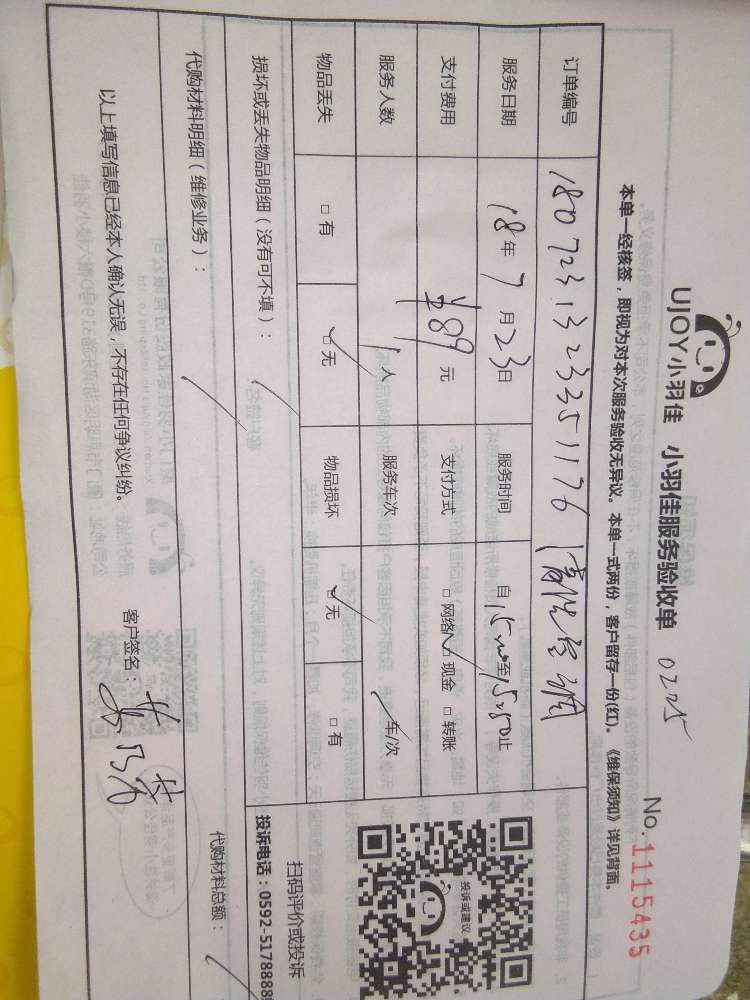 UJOY小羽佳 小羽佳服务验收单 0225
No.1115435
本单一经核签，即视为对本次服务验收无异议。本单一式两份，客户留存一份(红)。《维保须知》详见背面。
订单编号 1807231323351176 清洗空调
服务日期 18年7月23日 服务时间 自 至15:50止
支付费用 ¥89元 支付方式 □网络 □现金 □转账
服务人数 1人 服务车次 /车/次
物品丢失 □有 □无 物品损坏 □无 □有
投诉或建议
扫码评价或投诉
投诉电话：0592-5178888
损坏或丢失物品明细（没有可不填）：/
代购材料明细（维修业务）：/
代购材料总额：/
以上填写信息已经本人确认无误，不存在任何争议纠纷。
客户签名：